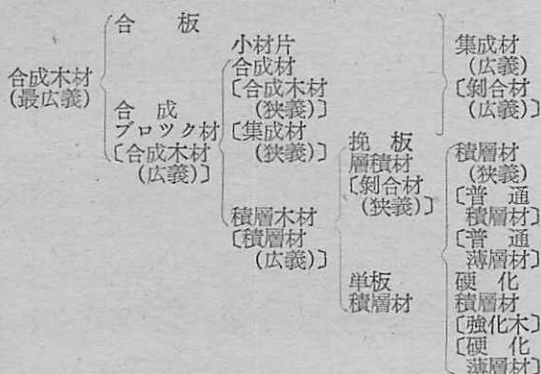 合成木材
(最広義)
合 板
合 成
ブロツク材
〔合成木材
(広義)〕
小材片
合成材
〔合成木材
(狭義)〕
〔集成材
(狭義)〕
積層木材
〔積層材
(広義)〕
挽 板
層積材
〔剝合材
(狭義)〕
単板
積層材
集成材
(広義)
〔剝合材
(広義)〕
積層材
(狭義)
〔普 通
積層材〕
〔普 通
薄層材〕
硬 化
積層材
〔強化木〕
〔硬 化
薄層材〕